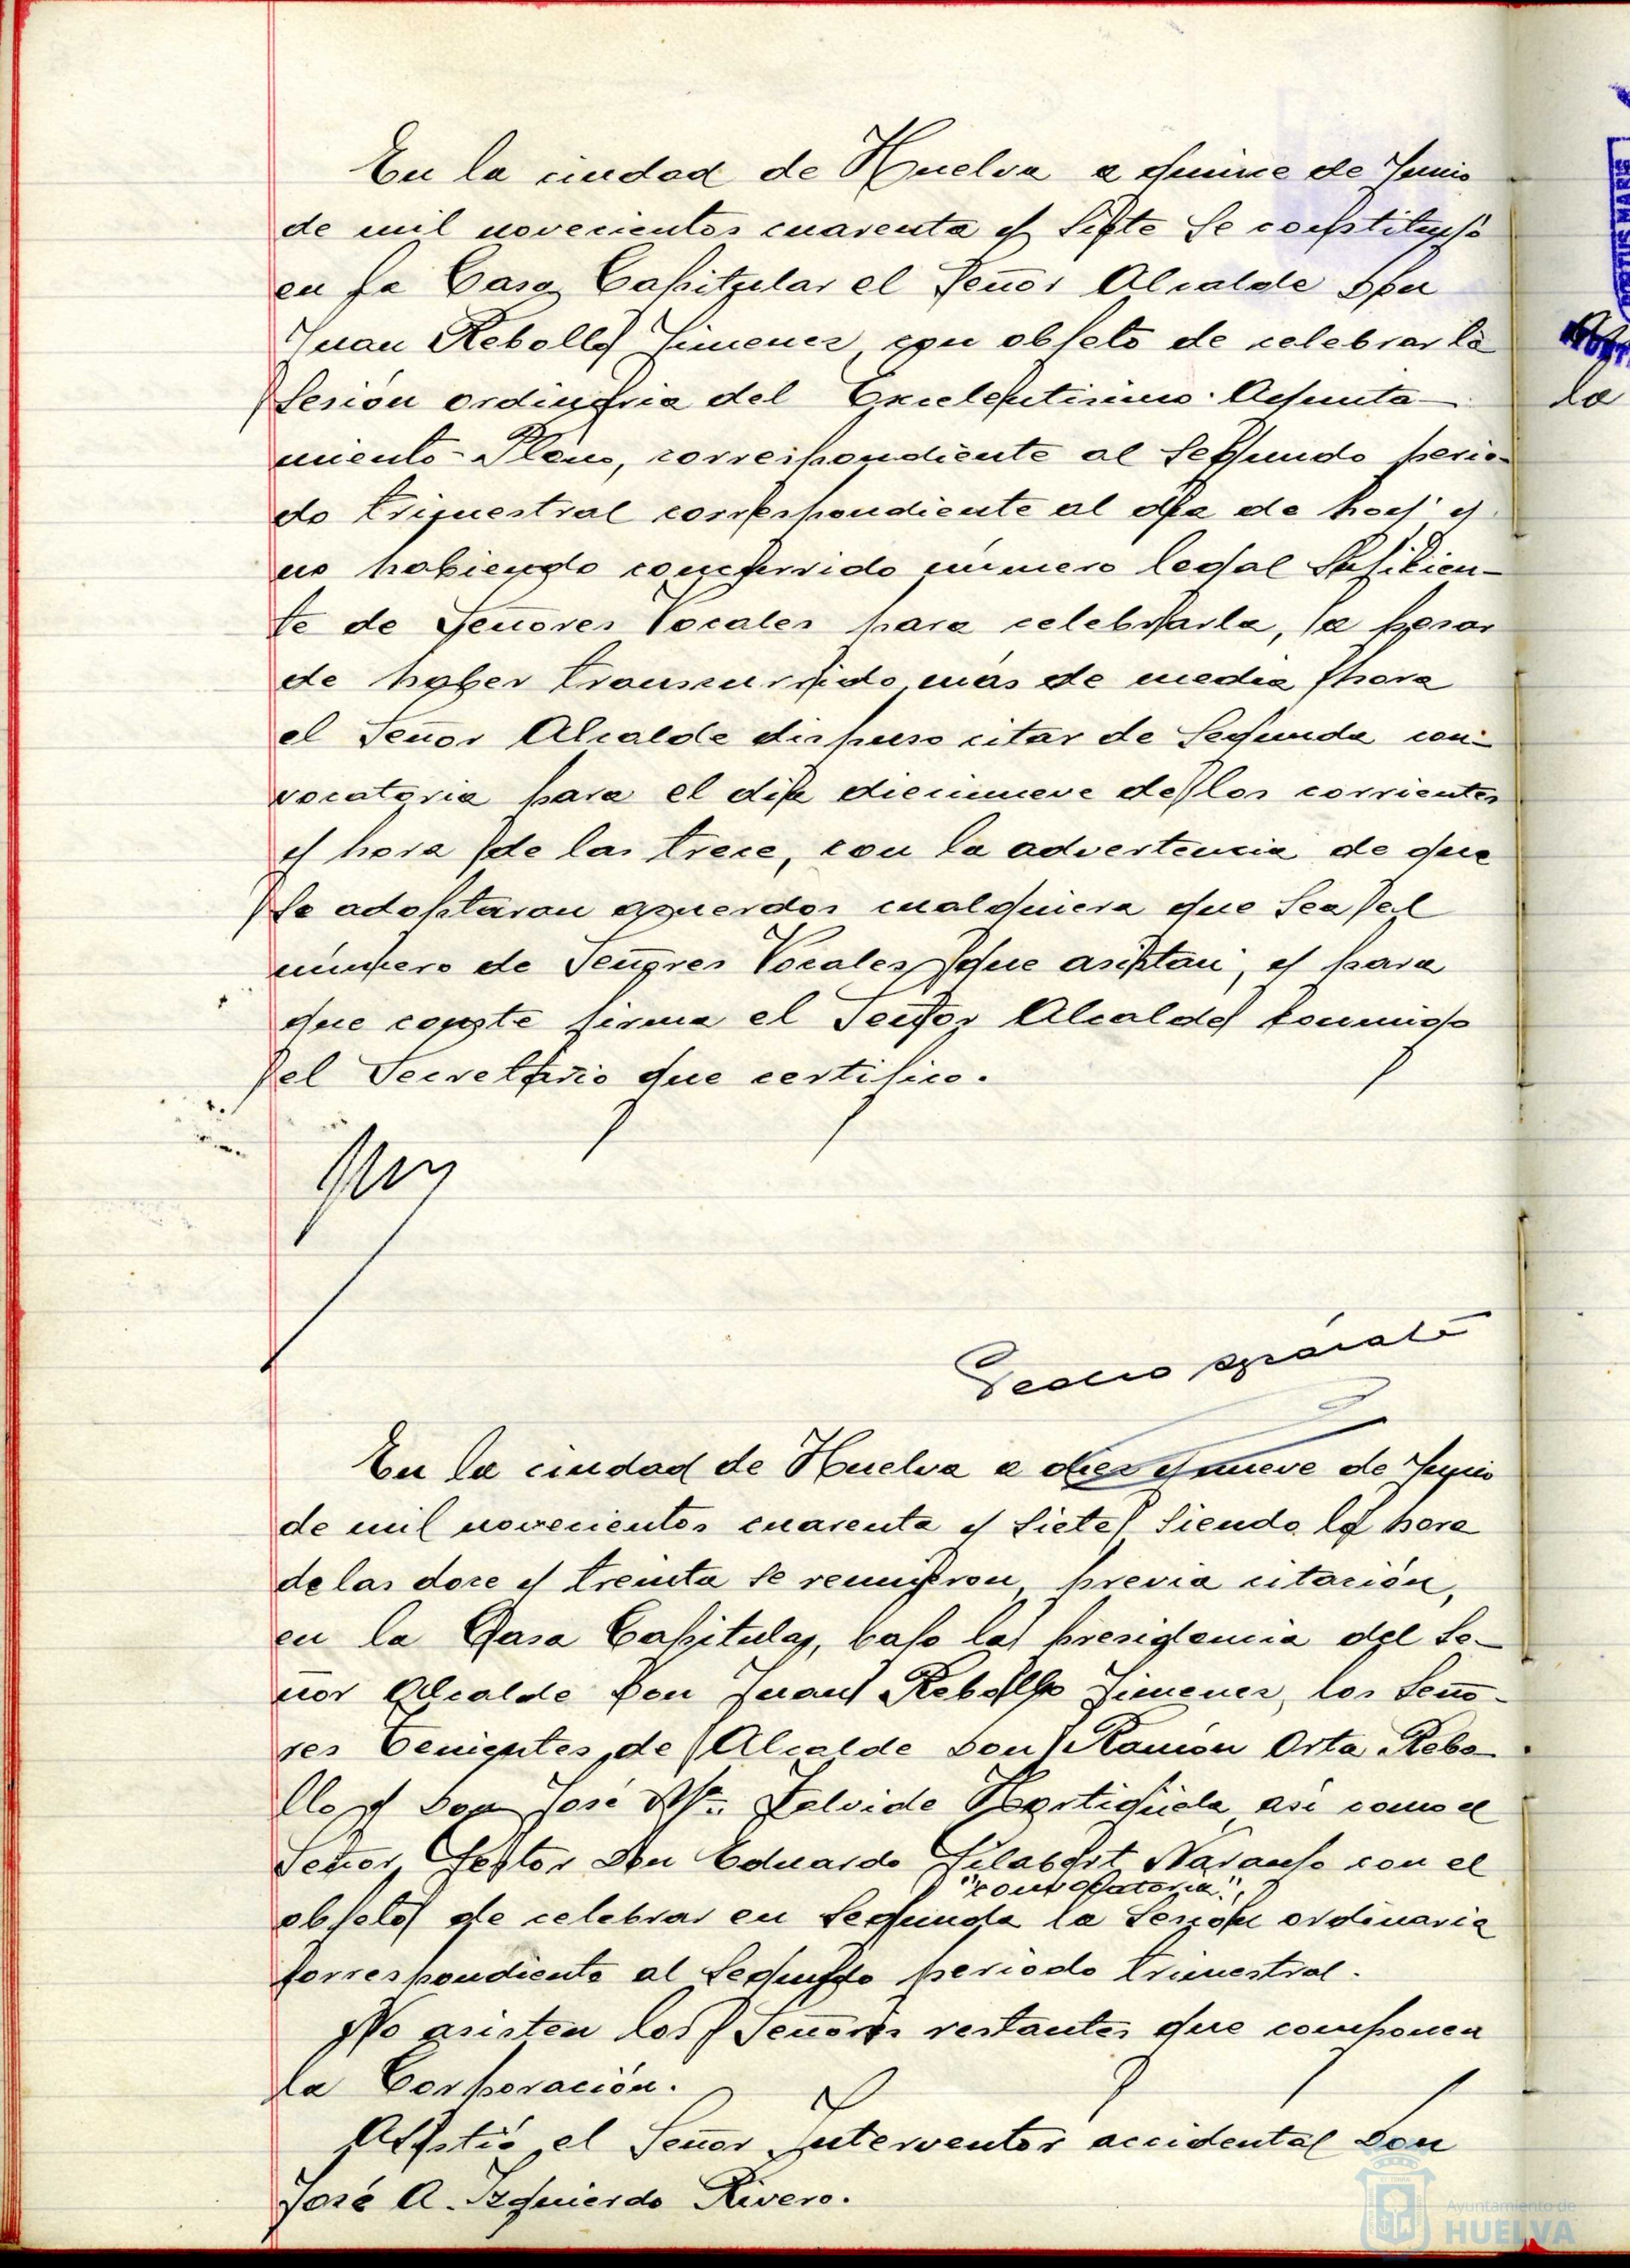 En la ciudad de Huelva a quince de Junio
de mil novecientos cuarenta y siete se constituyó
en la Casa Capitular el Señor Alcalde Don
Juan Rebollo Jimenez, con objeto de celebrar la
sesión ordinaria del Excelentisimo Ayunta-
miento-Pleno, correspondiente al segundo perio-
do trimestral correspondiente al día de hoy y
no habiendo concurrido número legal suficien-
te de Señores Vocales para celebrarla, a pesar
de haber transcurrido más de media hora
el Señor Alcalde dispuso citar de segunda con-
vocatoria para el día diecinueve de los corrientes
y hora de las trece, con la advertencia de que
se adoptaran acuerdos cualquiera que sea el
número de Señores Vocales que asistan, y para
que conste firma el Señor Alcalde conmigo
el Secretario que certifico.
Pedro
En la ciudad de Huelva a diez y nueve de Junio
de mil novecientos cuarenta y siete, siendo la hora
de las doce y treinta se reunieron, previa citación,
en la Casa Capitular, bajo la presidencia del Se-
ñor Alcalde Don Juan Rebollo Jimenez, los Seño-
res Tenientes de Alcalde Don Ramón Orta Rebo-
llo y Don José Mª. Zelvide Hortigüela, así como el
Señor Gestor Don Eduardo Gilabert Naranjo con el
"convocatoria",
objeto de celebrar en segunda la sesión ordinaria
correspondiente al segundo periodo trimestral.
No asisten los Señores restantes que componen
la Corporación.
Asistió el Señor Interventor accidental Don
José A. Izquierdo Rivero.
la
PORTUS MARIS
Ayuntamiento de
HUELVA